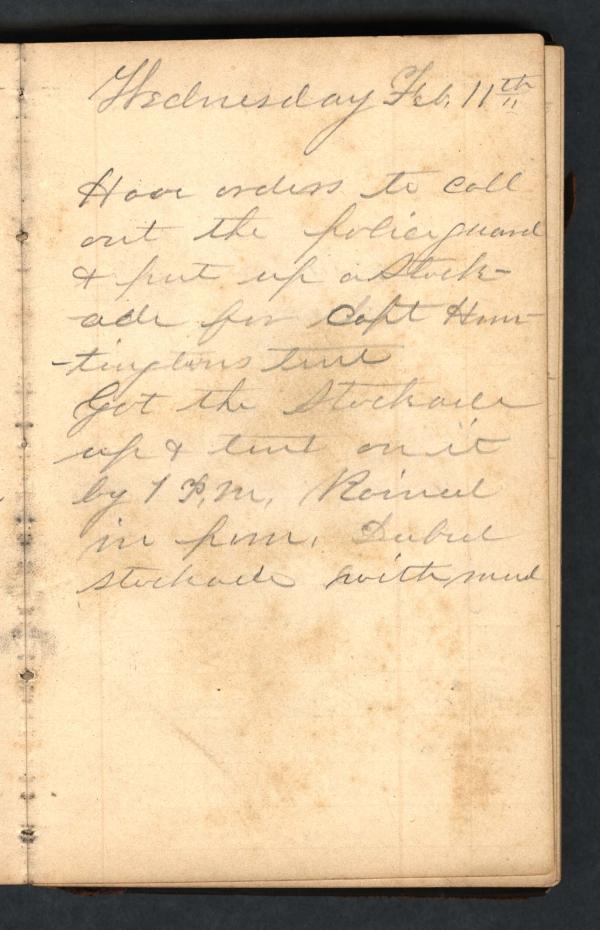 Wednesday Feb. 11th
Have orders to call
out the police guard
& put up a Stock-
ade for Capt Hun-
-tingtons tent
Got the Stockade
up & tent on it
by 1 P,M, Rained
in p.m. Dubed
stockade with mud